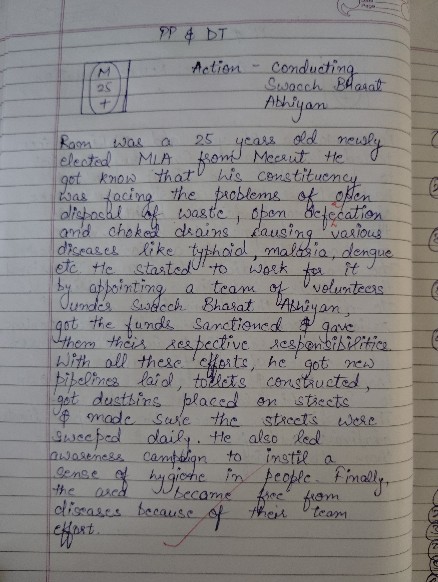 PP & DT
M
25
+
Action - Conducting
Swacch Bharat
Abhiyan
Ram was a 25 years old newly
elected MLA from Meerut He
got know that his constituency
was facing the problems of open
disposal of waste, open defecation
and choked drains causing various
diseases like typhoid, malaria, dengue
etc. He started to work for it
by appointing a team of volunteers
under Swacch Bharat Abhiyan,
got the funds sanctioned & gave
them their respective responsibilities
With all these efforts, he got new
pipelines laid, toilets constructed,
got dustbins placed on streets
& made sure the streets were
sweeped daily. He also led
awareness campaign to instil a
sense of hygiene in people. Finally,
the area became free from
diseases because of their team
effort.